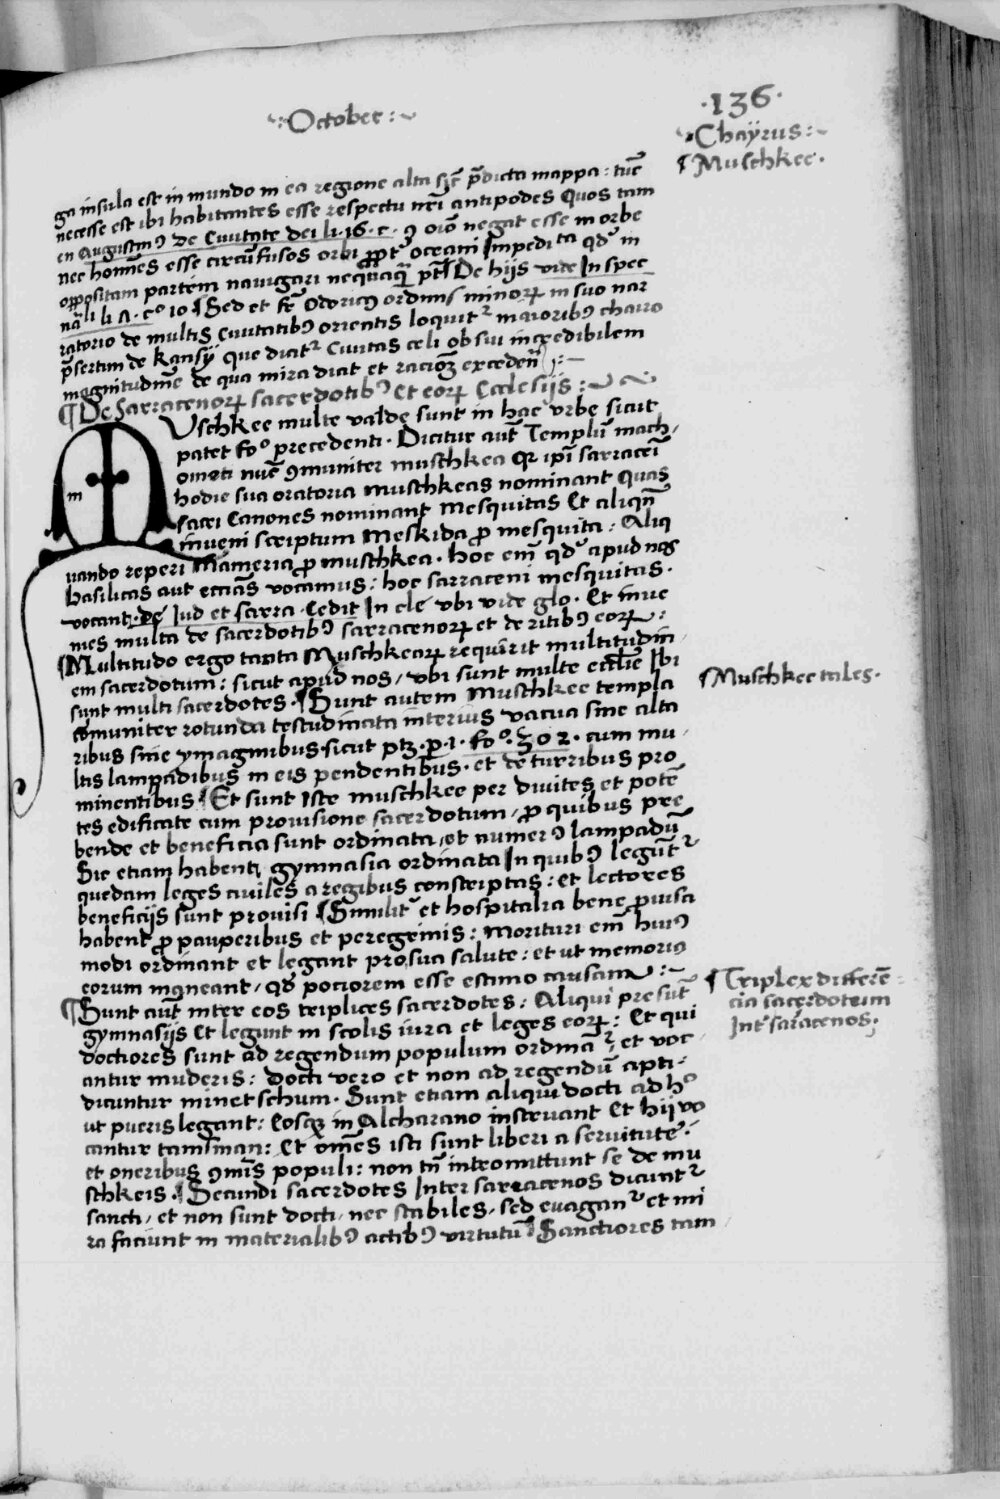 October
·136·
Chayrus
¶ Muschkee·
ga insula est in mundo in ea regione alta sic̃ p̃dicta mappa : tũc
necesse est ibi habitantes esse respectu nr̃i antipodes Quos tam
en Augustinꝰ de Ciuitate dei li·16·c· ꝯ oĩo negat esse in orbe
nec homĩes esse circũfusos orbi ꝓpt̉ oceani Impedita qd̉ in
oppositam partem nauigari neq̃uaq̃
De hijs vide In spec
nãli li
10 ¶ Sed et fr̃ Odoricꝰ ordinis minoꝝ in suo nar
ratorio de multis Ciuitatibꝰ orientis loquitᵣ maioribꝰ chairo
p̃sertim de Kansÿ que dicitᵣ Ciuitas celi ob sui incredibilem
magnitudinẽ de qua mira dicit et racionẽ excedeñ
¶ De Sarracenoꝝ sacerdotibꝰ Et eoꝝ Ecclesijs :
m
Vschkee multe valde sunt in hac vrbe sicut
patet fo° precedenti · Dicitur aut̃ Templũ mach
ometi nũc ꝯmuniter muschkea qr ip̃i sarraceĩ
hodie sua oratoria muschkeas nominant Quas
sacri Canones nominant Mesquitas Et aliqñ
inueni scriptum Meskida ꝓ mesquita : Aliq
uando reperi Mameria ꝓ muschkea · hoc em̃ qd̉ apud nos
basilicas aut eccĩas vocamus : hoc sarraceni mesquitas·
vocant· De Iud et sarra · Cedit In cle vbi vide glo· Et inue
nies multa de sacerdotibꝰ sarracenoꝝ et de ritibꝰ eoꝝ :
¶ Multitudo ergo tanta Muschkeaꝝ requirit multitudin
em sacerdotum : sicut apud nos / vbi sunt multe eccl̃ie Ibi
sunt multi sacerdotes · ¶ Sunt autem Muschkee templa
cõmuniter rotunda testudinata interius vacua sine alta
ribus sine ymaginibus sicut ptꝫ · p·1· fo°· 302· cum mu
ltis lampadibus in eis pendentibus· et de turribus pro
minentibus ¶ Et sunt Iste muschkee per diuites et potẽ
tes edificate cum prouisione sacerdotum / ꝓ quibus pre
bende et beneficia sunt ordinata / et numerꝰ lampadũ
Sic etiam habent gymnasia ordinata In quibꝰ legũtᵣ
quedam leges ciuiles a regibus conscriptas : et lectores
beneficijs sunt prouisi ¶ Similit̉ et hospitalia bene ꝓuisa
habent ꝓ pauperibus et peregrinis : Morituri em̃ huiꝰ
modi ordinant et legant pro sua salute : et ut memoriꝰ
eorum maneant / qd̉ pociorem esse estimo causam :
¶ Sunt aut̃ inter eos triplices sacerdotes : Aliqui presũt
gymnasijs Et legunt in scolis iura et leges eoꝝ : Et qui
doctiores sunt ad regendum populum ordinãᵣ et voc
antur muderis : docti vero et non ad regendũ apti
dicuntur minetschum · Sunt etiam aliqui docti ad h°
ut pueris legant : Eosqꝫ in Alcharano instruant Et hij vo
cantur tansman : Et om̃es isti sunt liberi a seruitute
et oneribus ꝯmĩs populi : non tñ intromittunt se de mu
schkeis · ¶ Secundi sacerdotes Inter sarracenos dicuntᵣ
sancti / et non sunt docti / nec stabiles / sed euaganᵣ et mi
ra faciunt in materialibꝰ actibꝰ virtutũ ¶ Sanctiores tam
¶ Muschkee tales·
¶ Triplex differẽ
cia sacerdotum
Int̉ saracenos